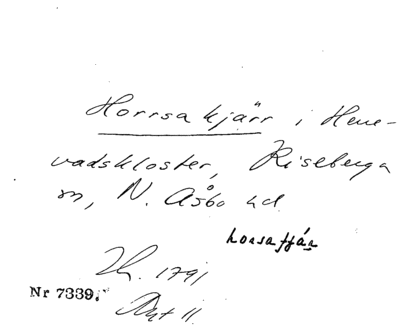 Horrsakjärr i Herre-
vadskloster, Riseberga
sn, N. Åsbo hd
horsafjär
Lh. 1791
Nr 7339.
Akt 11